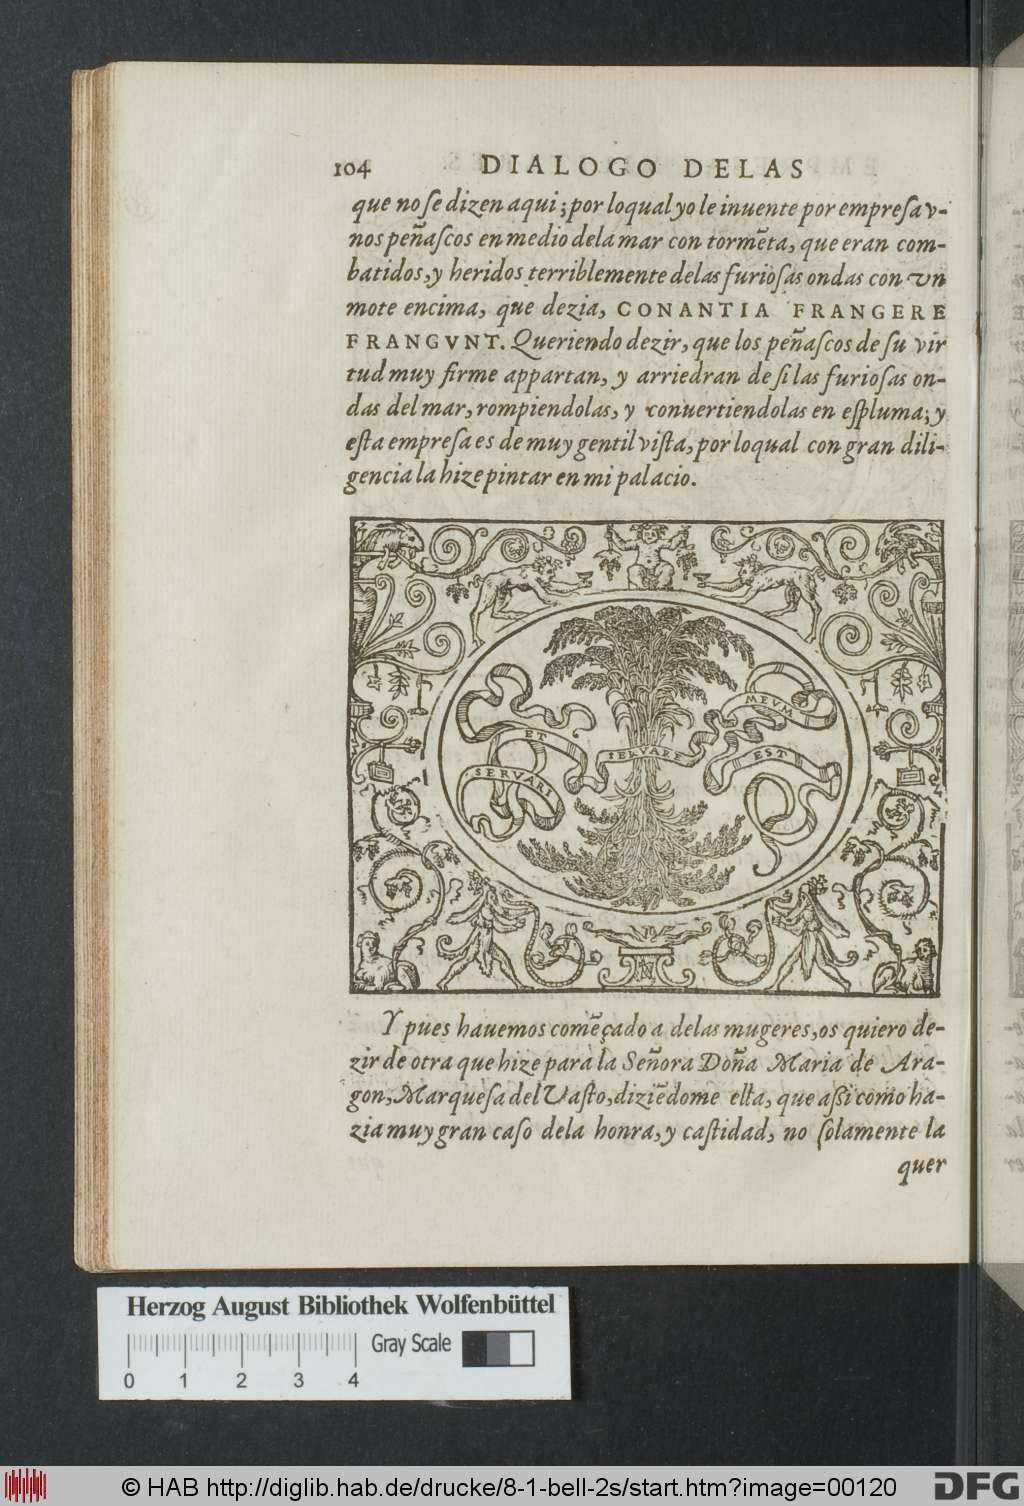 104 DIALOGO DELAS
que no ſe dizen aqui; por loqual yo le inuente por empreſa v-
nos peñaſcos en medio dela mar con tormẽta, que eran com-
batidos, y heridos terriblemente delas furioſas ondas con vn
mote encima, que dezia, CONANTIA FRANGERE
FRANGVNT. Queriendo dezir, que los peñaſcos de ſu vir
tud muy firme appartan, y arriedran de ſi las furioſas on-
das del mar, rompiendolas, y conuertiendolas en eſpluma; y
eſta empreſa es de muy gentil viſta, por loqual con gran dili-
gencia la hize pintar en mi palacio.
SERVARI
ET
SERVARE
MEVM
EST
Y pues hauemos comẽçado a delas mugeres, os quiero de-
zir de otra que hize para la Señora Doña Maria de Ara-
gon, Marqueſa del Vaſto, diziẽdome ella, que aſſi como ha-
zia muy gran caſo dela honra, y caſtidad, no ſolamente la
quer
Herzog August Bibliothek Wolfenbüttel
Gray Scale
0 1 2 3 4
© HAB http://diglib.hab.de/drucke/8-1-bell-2s/start.htm?image=00120
DFG